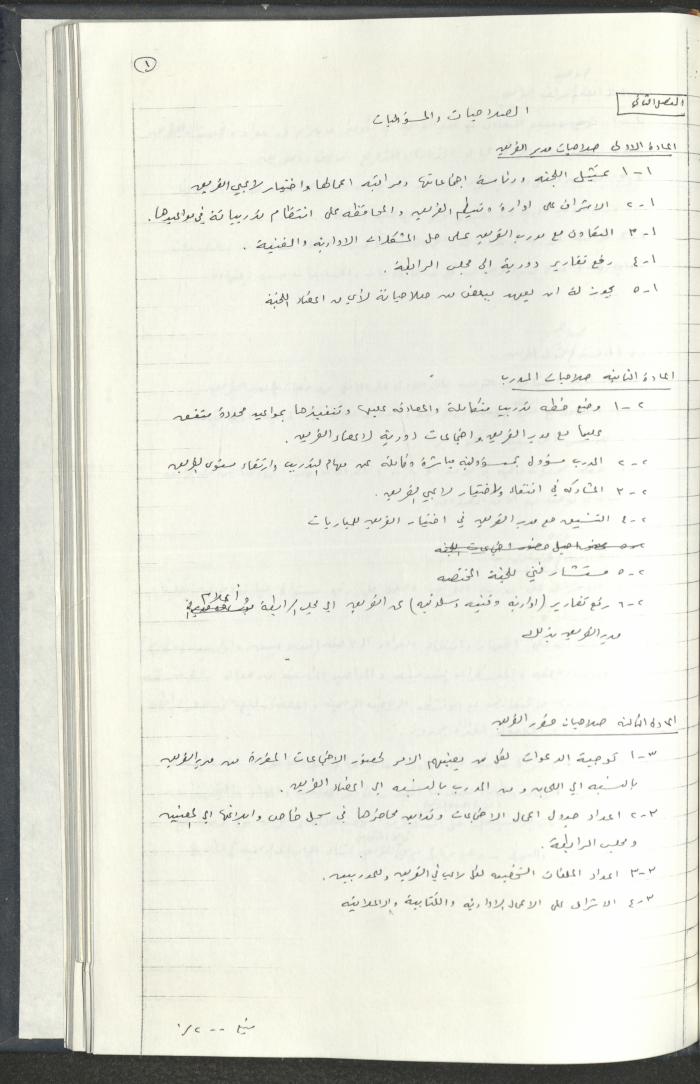 ١
الفصل الثاني
الصلاحيات والمسؤوليات
المادة الاولى صلاحيات مدير الفريق
١-١ تمثيل اللجنه ورئاسة اجتماعاتها ومراقبه اعمالها واختيار لاعبي الفريق
١-٢ الاشراف على ادارة وتنظيم الفريق والمحافظه على انتظام تدريباته في مواعيدها.
١-٣ التعاون مع مدرب الفريق على حل المشكلات الادارية والفنية.
١-٤ رفع تقارير دورية الى مجلس الرابطة.
١-٥ يجوز له ان يعهد ببعض من صلاحياته لأي من اعضاء اللجنة
المادة الثانيه صلاحيات المدرب
٢-١ وضع خطه تدريب متكاملة والمصادقه عليها وتنفيذها بمواعيد محددة متفق
عليها مع مدير الفريق واجتماعات دورية لاعضاء الفريق.
٢-٢ المدرب مسؤول بمسؤولية مباشرة وكاملة عن مهام التدريب وارتقاء مستوى الفريق
٢-٣ المشاركه في انتقاء واختيار لاعبي الفريق.
٢-٤ التنسيق مع مدير الفريق في اختيار الفريق للمباريات
٢-٥ حضور اجتماعات اللجنه
٢-٥ مستشار فني للجنة المختصه
٢-٦ رفع تقارير (ادارية وفنيه وسلوكيه) عن الفريق الى مجلس الرابطة اعلام
مدير الفريق بذلك
المادة الثالثه صلاحيات مقرر الفريق
٣-١ توجية الدعوات لكل من يعنيهم الامر لحضور الاجتماعات المقررة من مدير الفريق
بالنسبه الى اللجان ومن المدرب بالنسبه الى اعضاء الفريق.
٣-٢ اعداد جدول اعمال الاجتماعات وتدوين محاضرها في سجل خاص وابلاغها الى المعنيين
ومجلس الرابطة.
٣-٣ اعداد الملفات الشخصيه لكل لاعب في الفريق وللمدربين.
٣-٤ الاشراف على الاعمال الادارية والكتابية والاعلانيه
يتبع -- ٢